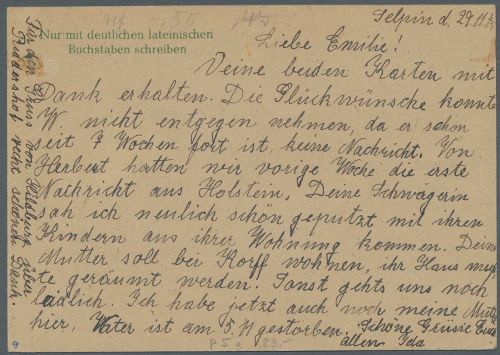 Nur mit deutlichen lateinischen
Buchstaben schreiben
Selpin d. 29.11.
Liebe Emilie!
Deine beiden Karten mit
Dank erhalten. Die Glückwünsche konnte
W. nicht entgegen nehmen, da er schon
seit 7 Wochen fort ist, keine Nachricht. Von
Herbert hatten wir vorige Woche die erste
Nachricht aus Holstein. Deine Schwägerin
sah ich neulich schon geputzt mit ihren
Kindern aus ihrer Wohnung kommen. Deine
Mutter soll bei Korff wohnen, ihr Haus muß
te geräumt werden. Sonst gehts uns noch
leidlich. Ich habe jetzt auch noch meine Mutter
hier. Vater ist am 5.11 gestorben. Schöne Grüsse Euch
allen Ida
Für den Gruss von Hildburg
recht schönen Dank
P5a 83.-